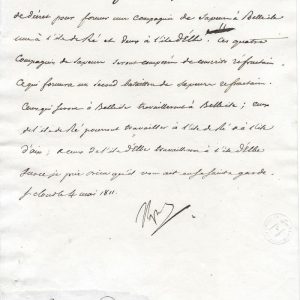 de décret pour former une compagnie de sapeurs à Belleisle
une à l'ile de Ré et deux à l'ile d'Elbe. Ces quatre
Compagnies de sapeurs seront composées de conscrits réfractaires
Ce qui formera un second bataillon de sapeurs réfractaires
Ceux qui seront à Belleisle travailleront à Belleisle ; ceux
de l'ile de Ré pourront travailler à l'ile de Ré et à l'ile
d'aix ; et ceux de l'ile d'Elbe travailleront à l'ile d'Elbe
Sur ce je prie Dieu qu'il vous ait en sa sainte garde
St Cloud le 4 mai 1811.